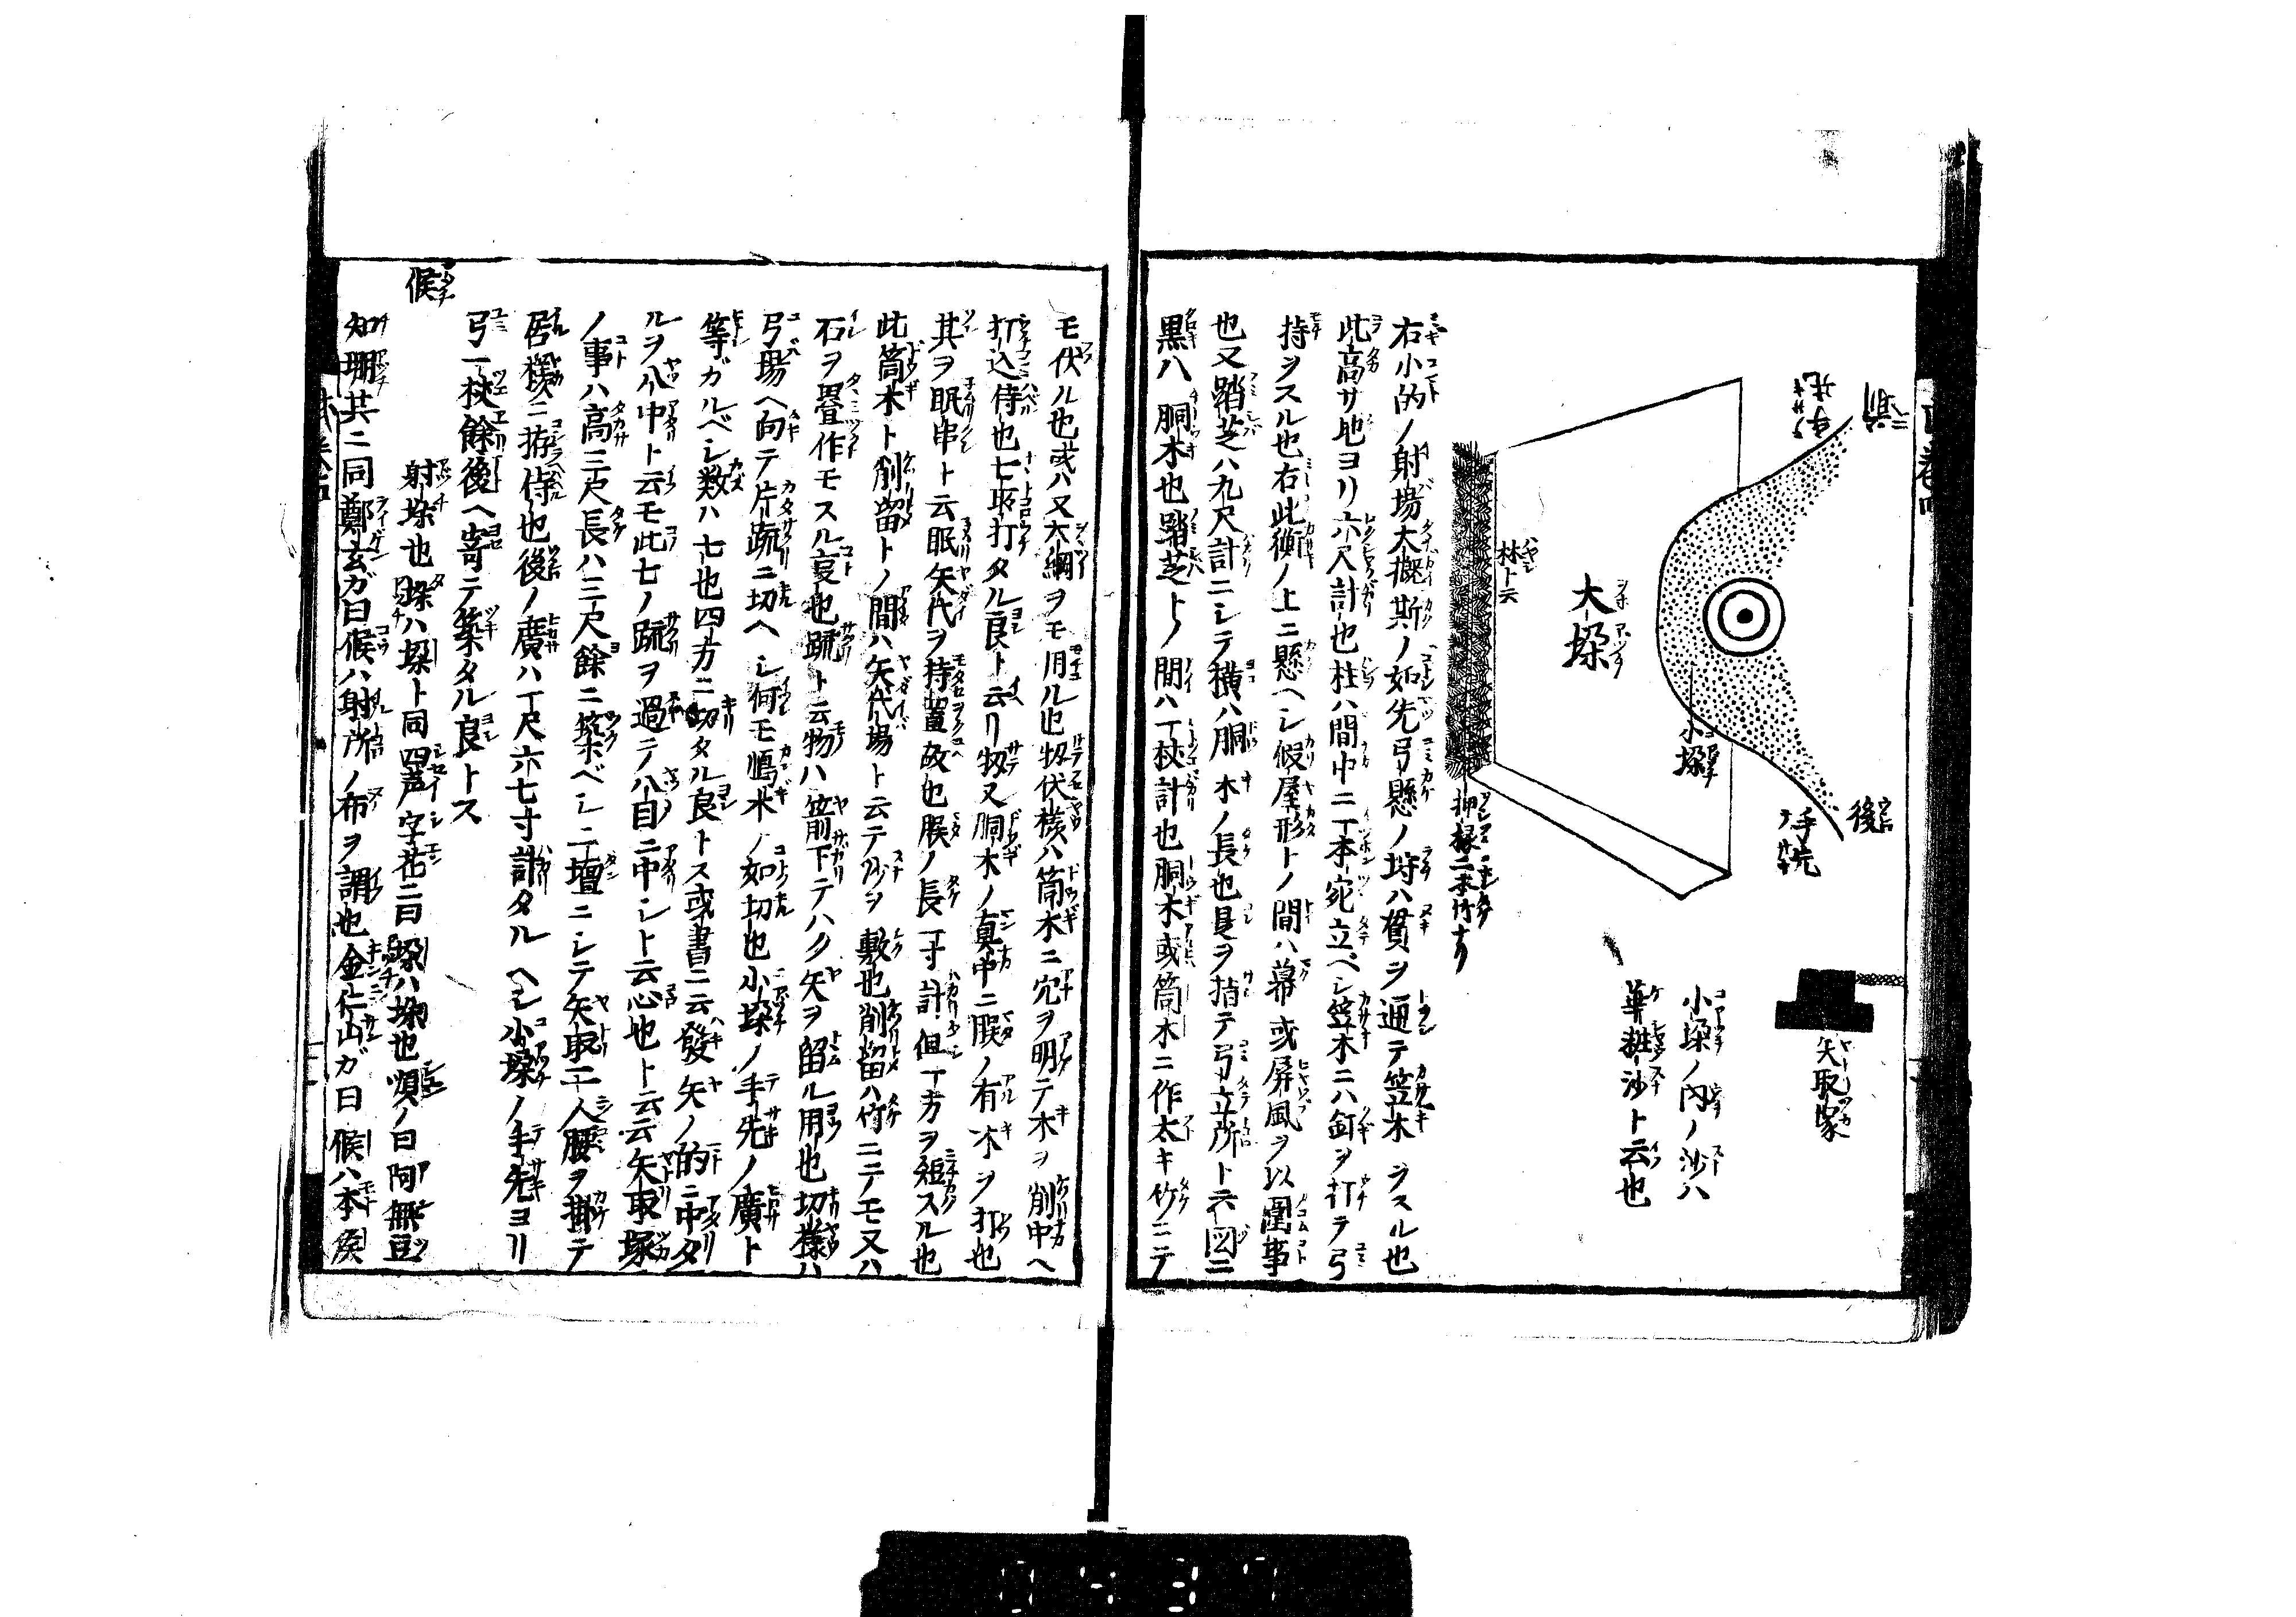 手先
林ト云
大垜
小垜
後
手先
押縁二本竹ナリ
矢取塚
小垜ノ内ノ沙ハ
華粧沙ト云也
右小的ノ射場大概斯ノ如先弓懸ノ埒ハ貫ヲ通テ笠木ヲスル也
此高サ地ヨリ六尺計也柱ハ間中ニ一本宛立ベシ笠木ニハ釘ヲ打テ弓
持ヲスル也右此衡ノ上ニ懸ヘシ假屋形トノ間ハ幕或屏風ヲ以圍事
也又蹈芝ハ九尺計ニシテ横ハ胴木ノ長也是ヲ指テ弓立所ト云図ニ
黒ハ胴木也蹈芝トノ間ハ一杖計也胴木或筒木ニ作太キ竹ニテ
モ伏ル也或ハ又大綱ヲモ用ル也扨伏様ハ筒木ニ穴ヲ明テ木ヲ削中ヘ
打込侍也七所打タル良ト云リ扨又胴木ノ真中ニ睱ノ有木ヲ打也
其ヲ眠串ト云眠矢代ヲ持置故也睱ノ長一寸計但一方ヲ短スル也
此筒木ト削留トノ間ハ矢代場ト云テ沙ヲ敷也削留ハ竹ニテモ又ハ
石ヲ畳作モスル事也䟽ト云物ハ箭下テハク矢ヲ留ル用也切様ハ
弓場ヘ向テ片䟽ニ切ヘシ何モ鴫木ノ如切也小垜ノ手先ノ廣ト
等ガルベシ数ハ七也四方ニ切タル良トス或書ニ云發矢ノ的ニ中タ
ルヲ八中ト云モ此七ノ䟽ヲ過テ八自ニ中シト云心也ト云云矢取塚
ノ事ハ高二尺長ハ三尺餘ニ築ベシ二壇ニシテ矢取二人腰ヲ掛テ
居様ニ拵侍也後ノ廣ハ一尺六七寸計タルヘシ小垜ノ手先ヨリ
弓一杖餘後ヘ寄テ築タル良トス
候
射垜也垜ハ垜ト同四声字苑ニ曰垜ハ垜也順ノ曰阿無豆
知堋共ニ同鄭玄ガ曰候ハ射所ノ布ヲ謂也金仁山ガ曰候ハ本矦